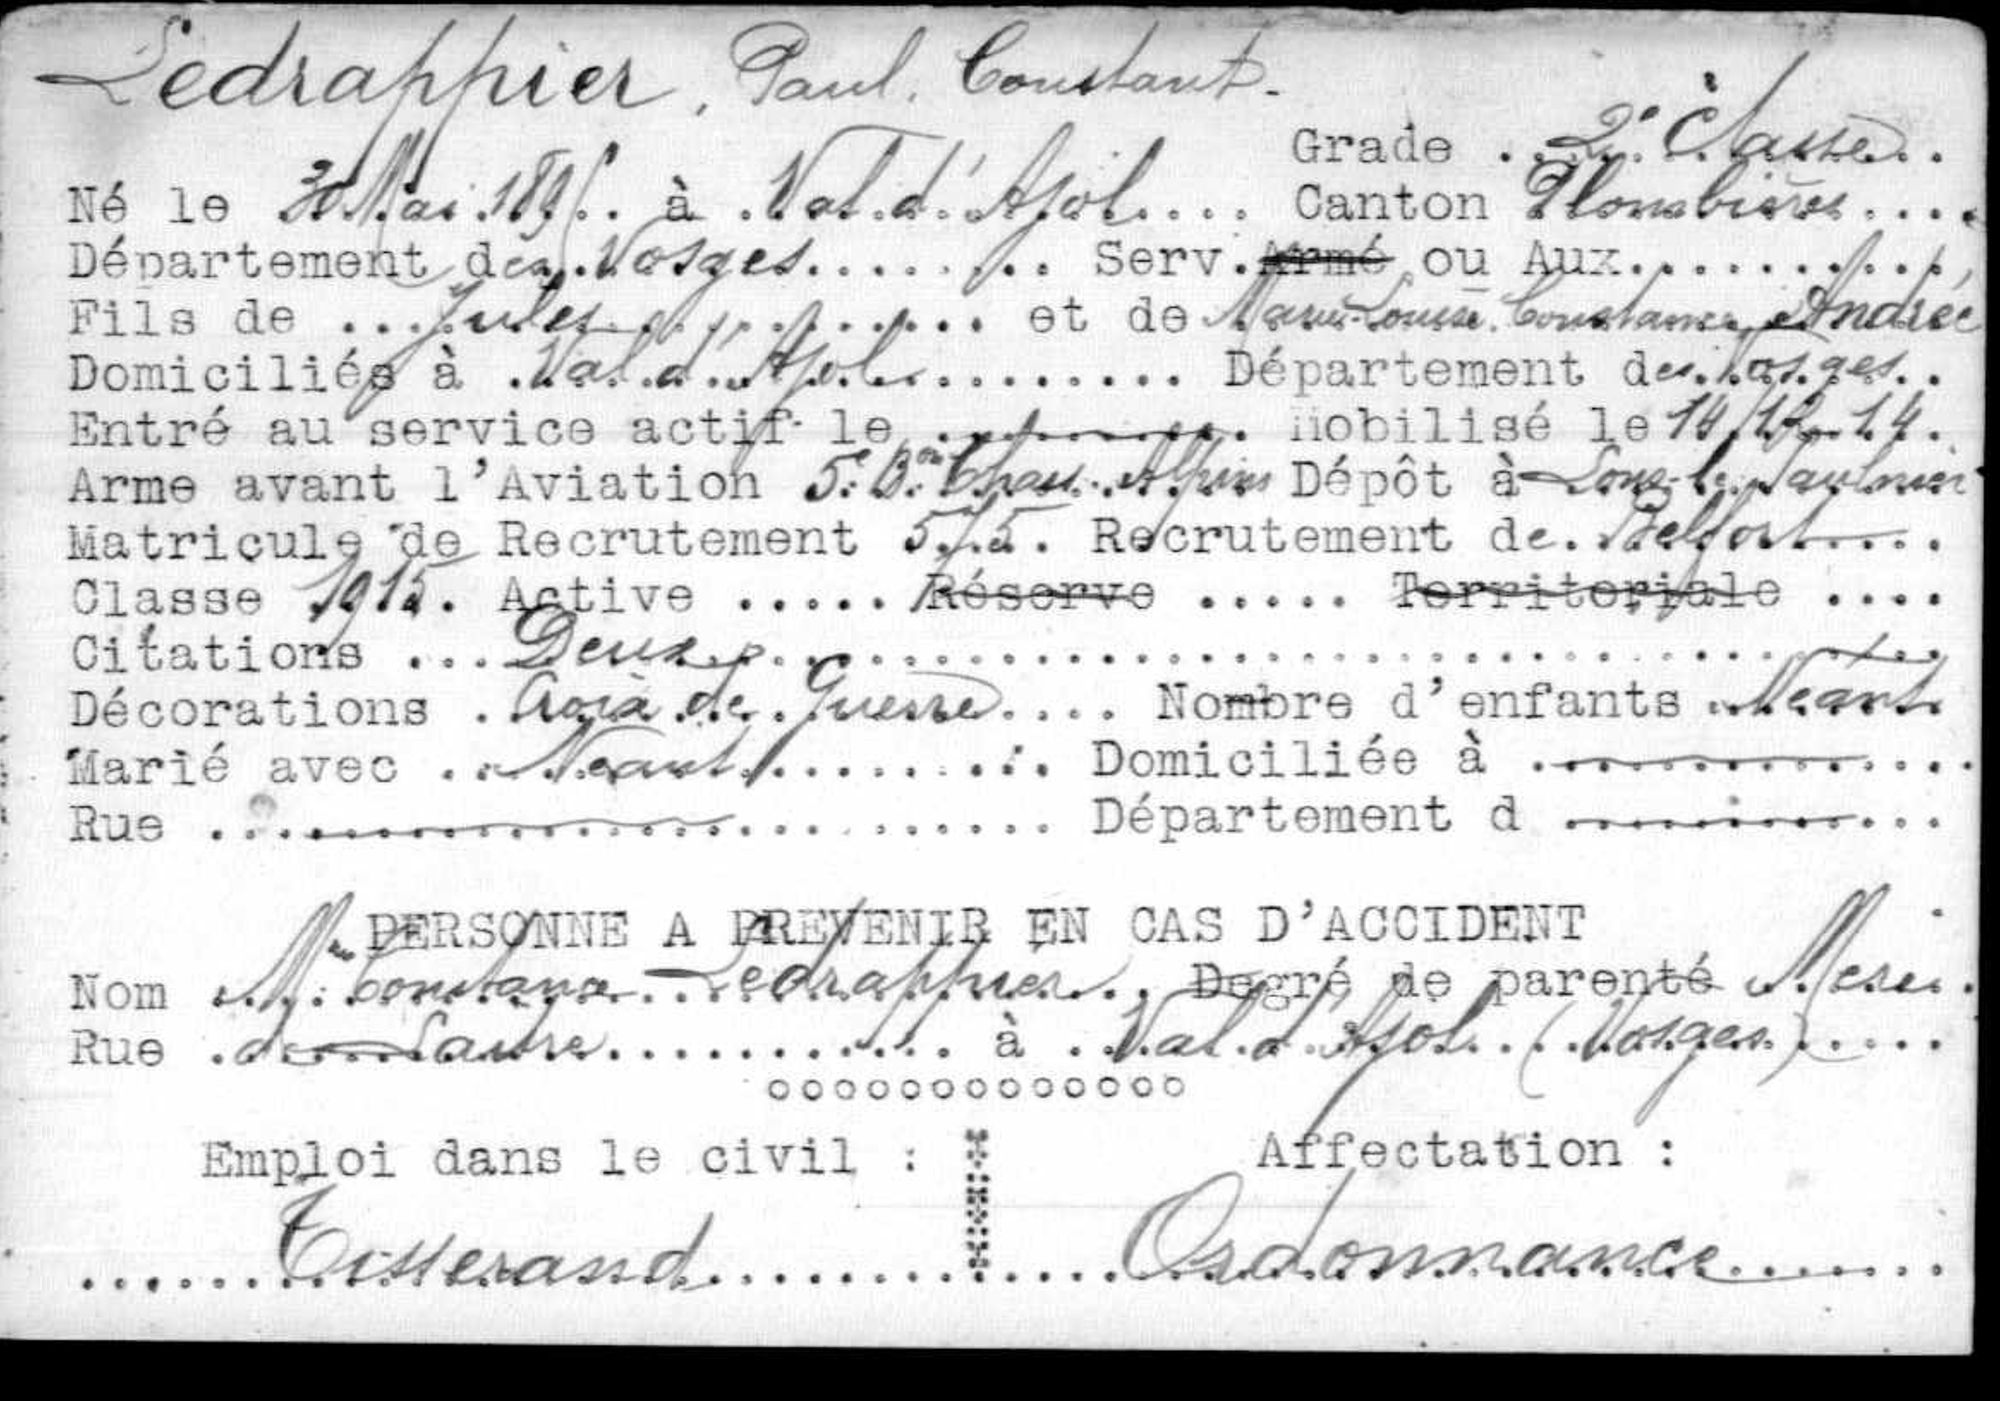 Ledrappier, Paul, Constant.
Grade 2e Classe
Né le 30 Mai 1895 à Val d'Ajol Canton Plombières
Département des Vosges Serv. Armé ou Aux.
Fils de Jules et de Marie-Louise Constance Andrée
Domiciliés à Val d'Ajol Département des Vosges
Entré au service actif le Mobilisé le 14.12.14.
Arme avant l'Aviation 5e Bon Chass. Alpins Dépôt à Lons-le-Saulnier
Matricule de Recrutement 575. Recrutement de Belfort
Classe 1915. Active ..... Réserve ..... Territoriale ....
Citations ... Deux
Décorations . Croix de Guerre .... Nombre d'enfants Néant
Marié avec Néant Domiciliée à
Rue Département d
PERSONNE A PREVENIR EN CAS D'ACCIDENT
Nom Mme Constance Ledrappier Degré de parenté Mère
Rue de à Val d'Ajol (Vosges)
°°°°°°°°°°°°°
Emploi dans le civil : Affectation :
Tisserand Ordonnance